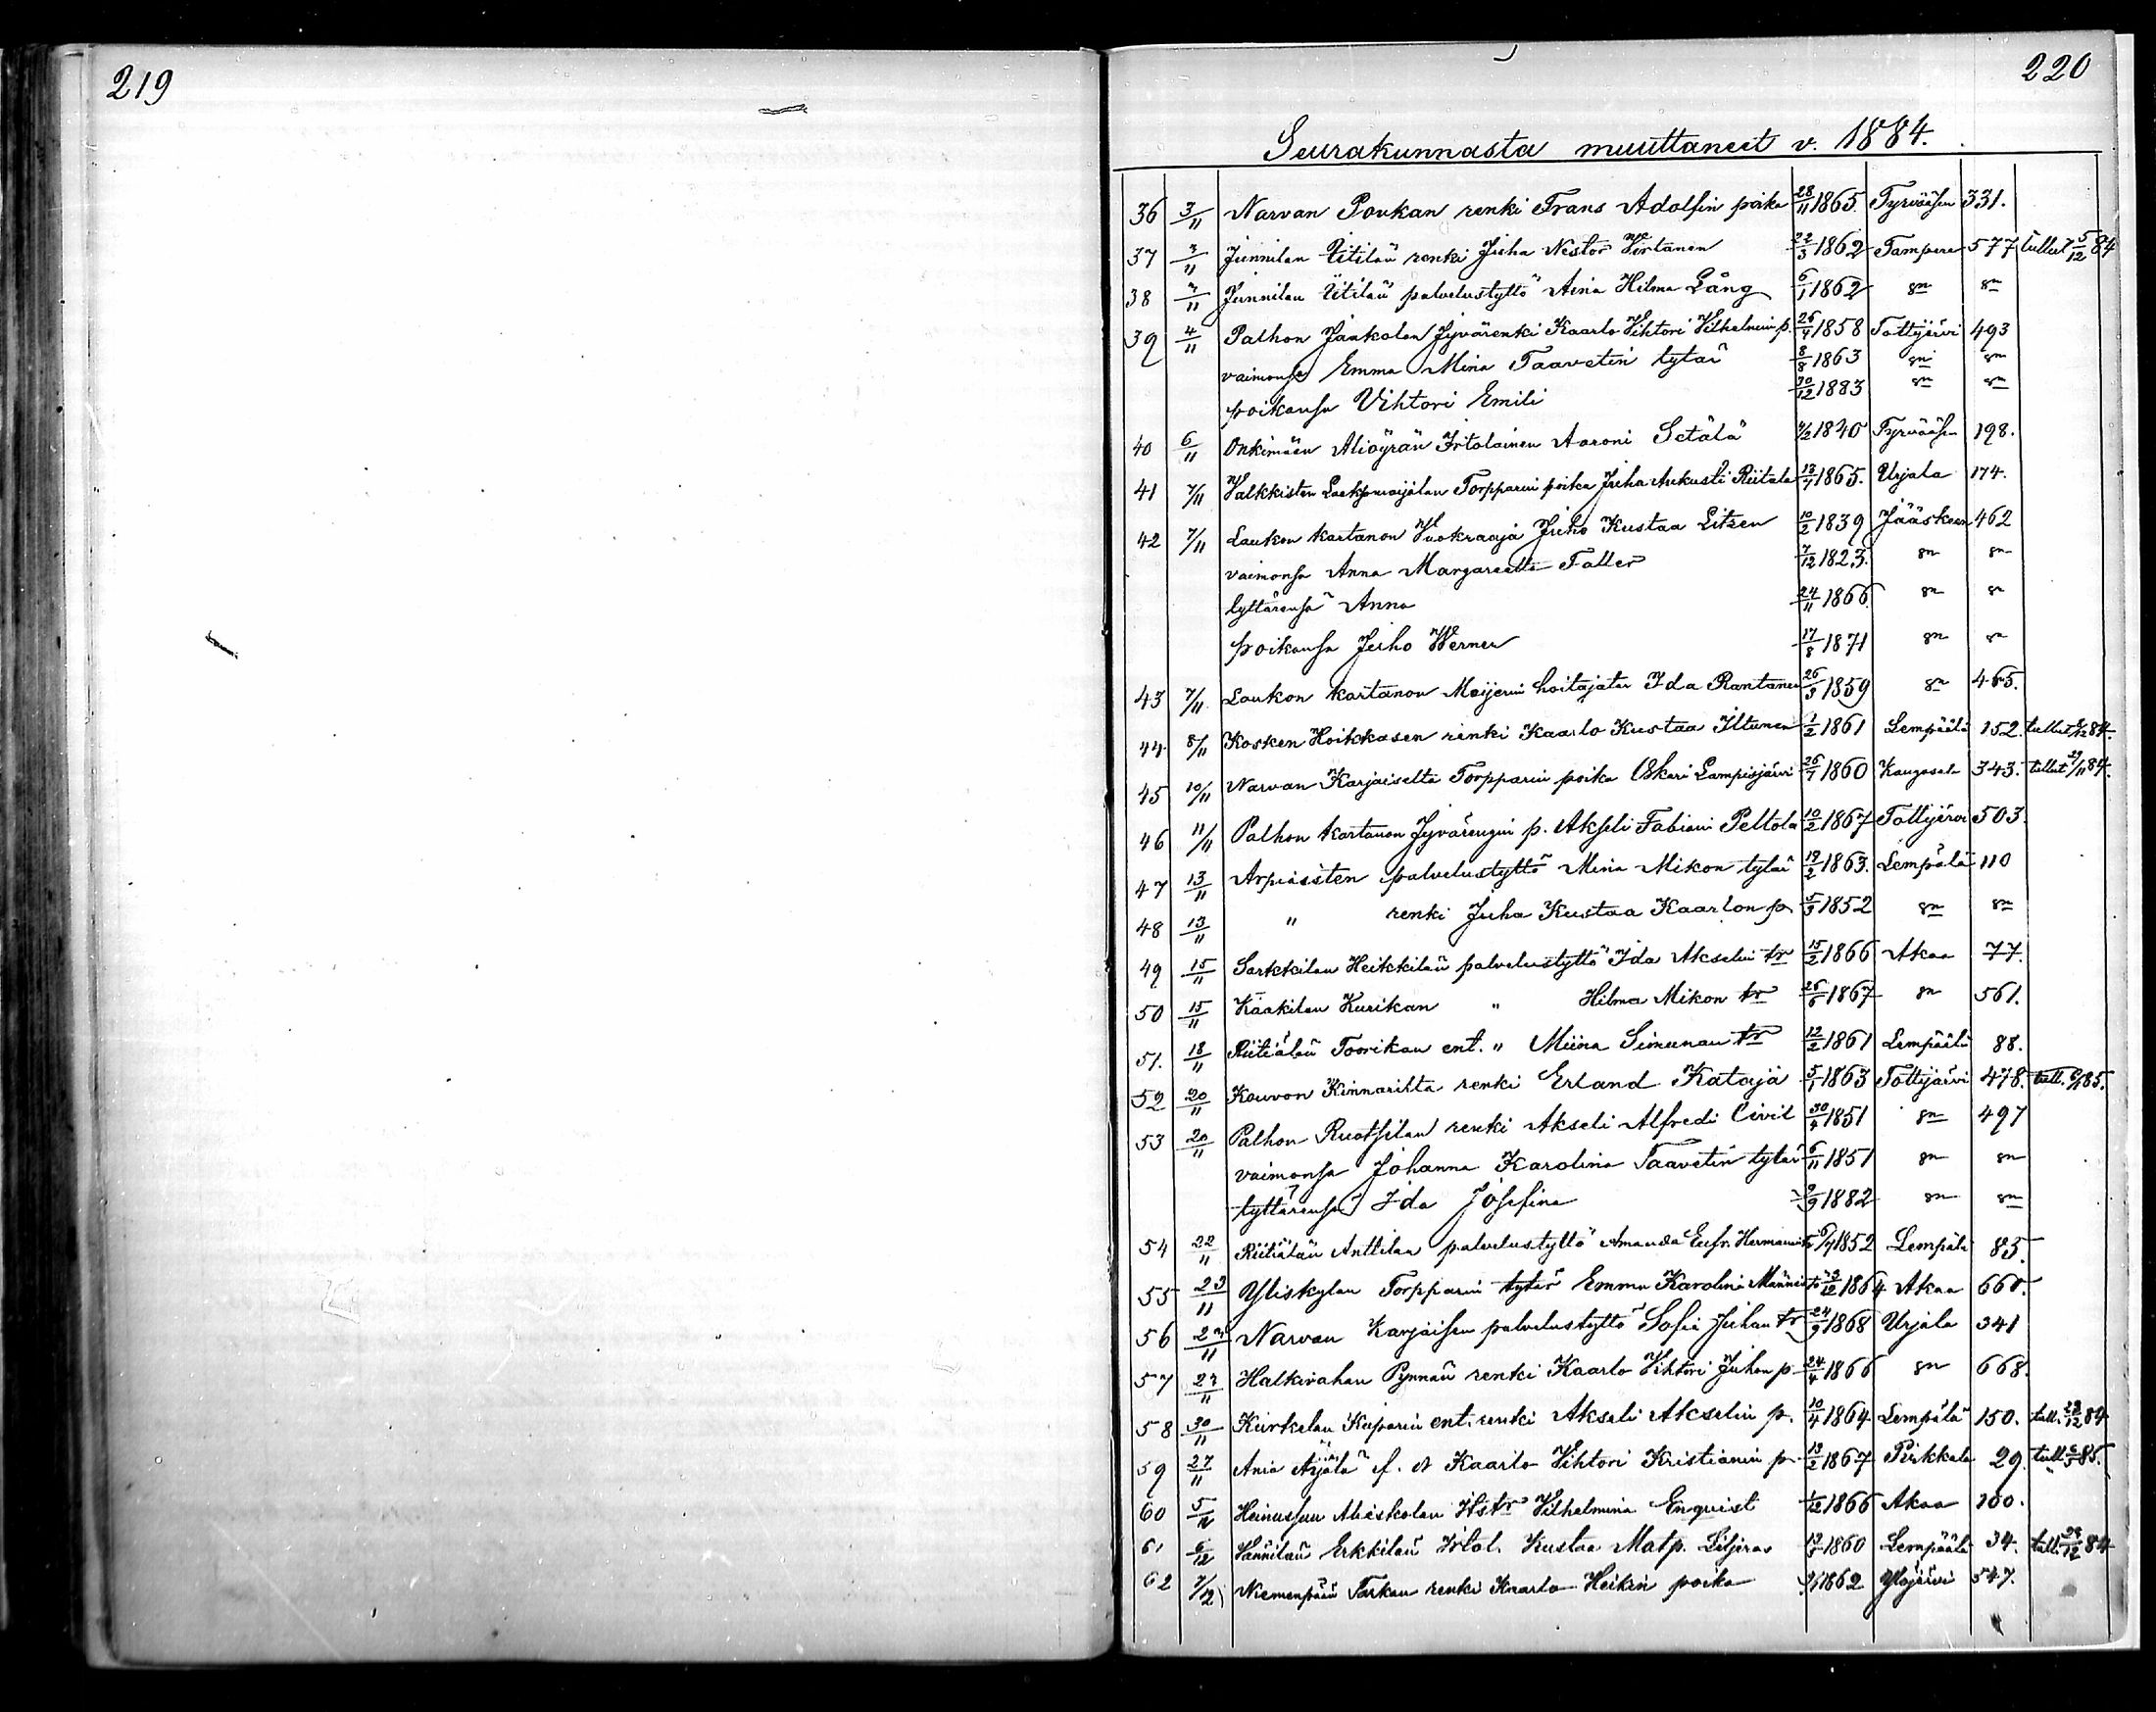 219
220
Seurakunnasta muuttaneet v. 1884.
36 3/11 Narvan Poukan renki Frans Adolfin poika 28/11 1865. Tyrvääsen 331.
37 3/11 Junnilan Ütilän renki Juha Nestor Virtanen 22/3 1862 Tampere 577 tullut 5/12 84
38 3/11 Junnilan Ütilän palvelustyttö Aina Hilma Lång 6/1 1862 sm sm
39 4/11 Palhon Jaakolan Jyvärenki Kaarlo Vihtori Vilhelmin p. 1858 Tottijärvi 493
vaimonsa Emma Mina Taavetin tytär 8/8 1863 sm sm
poikansa Vihtori Emili 30/12 1883 sm sm
40 6/11 Onkimäen Alioyrän Irtolainen Aaroni Setälä 1840 Tyrvääsen 198.
41 7/11 Valkkisten Torpparin poika Juha Aukusti Riitala 1865. Urjala 174.
42 7/11 Laukon kartanon Vuokraaja Juho Kustaa Litzen 10/2 1839 Jääsken 462
vaimonsa Anna Margareetta Faller 7/12 1823. sm sm
tyttärensä Anna 24/11 1866. sm sm
poikansa Juho Werner 17/8 1871 sm sm
43 7/11 Laukon kartanon Meijerin hoitajatar Ida Rantanen 26/3 1859 sm 465.
44 8/11 Kosken Hoikkasen renki Kaarlo Kustaa Iltunen 1/2 1861 Lempäälä 152. tullut 84.
45 10/11 Narvan Karjaiselta Torpparin poika Oskari Lampisjärvi 26/7 1860 Kangasala 343. tullut 29/11 84.
46 11/11 Palhon kartanon Jyvärengin p. Akseli Fabiani Peltola 10/2 1867 Tottijärvi 503.
47 13/11 Arpiaisten palvelustyttö Mina Mikon tytär 1863. Lempälä 110
48 13/11 " renki Juha Kustaa Kaarlon p. 5/3 1852 sm sm
49 15/11 Sarkkilan Heikkilän palvelustyttö Ida Akselin tr 15/2 1866 Akaa 77.
50 15/11 Kaakilan Kurikan " Hilma Mikon tr 1867 sm 561.
51. 18/11 Riitiälän Toorikan ent. " Miina Simunan tr 12/2 1861 Lempäälä 88.
52 20/11 Kouvon Kinnarihta renki Erland Kataja 5/1 1863 Tottijärvi 478. tull. 85.
53 20/11 Palhon Ruotsilan renki Akseli Alfredi Civil 30/4 1851 sm 497
vaimonsa Johanna Karolina Taavetin tytär 6/11 1851 sm sm
tyttärensä Ida Josefina 9/9 1882 sm sm
54 22/11 Riitiälän Anttilan palvelustyttö Amanda Eufr. Hermanin 1852 Lempälä 85.
55 23/11 Yliskylan Torpparin tytär Emma Karolina Männistö 1864 Akaa 660.
56 23/11 Narvan Karjaisen palvelustyttö Sofia Juhan tr 24/9 1868 Urjala 341
57 27/11 Halkivahan Pynnän renki Kaarlo Vihtori Juhon p 24/4 1866 sm 668.
58 30/11 Kurkelan Kuparin ent. renki Akseli Akselin p. 10/4 1864 Lempälä 150. tull. 84
59 27/11 Ania Arjala Kaarlo Vihtori Kristianin p 13/2 1867 Pirkkala 29. tull. 85.
60 5/12 Heinussuu Alieskolan Itstr Vilhelmina Enqvist 1/12 1866 Akaa 100.
61 6/12 Vännilän Erkkilän Irtol. Kustaa Matp. Liljeros 1860 Lempäälä 34. tull. 84
62 7/12 Niemenpään Tarkan renki Kaarlo Heikin poika 1862 Ylöjärvi 547.